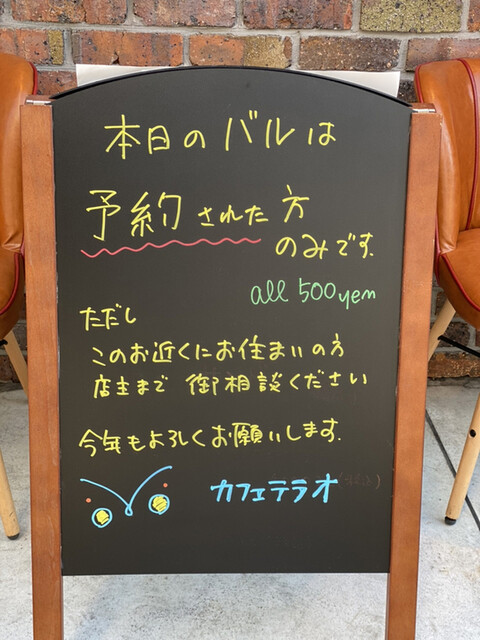 本日のバルは
予約された方
のみです。
all 500yen
ただし
このお近くにお住まいの方
店主まで 御相談ください
今年もよろしくお願いします。
カフェテラオ